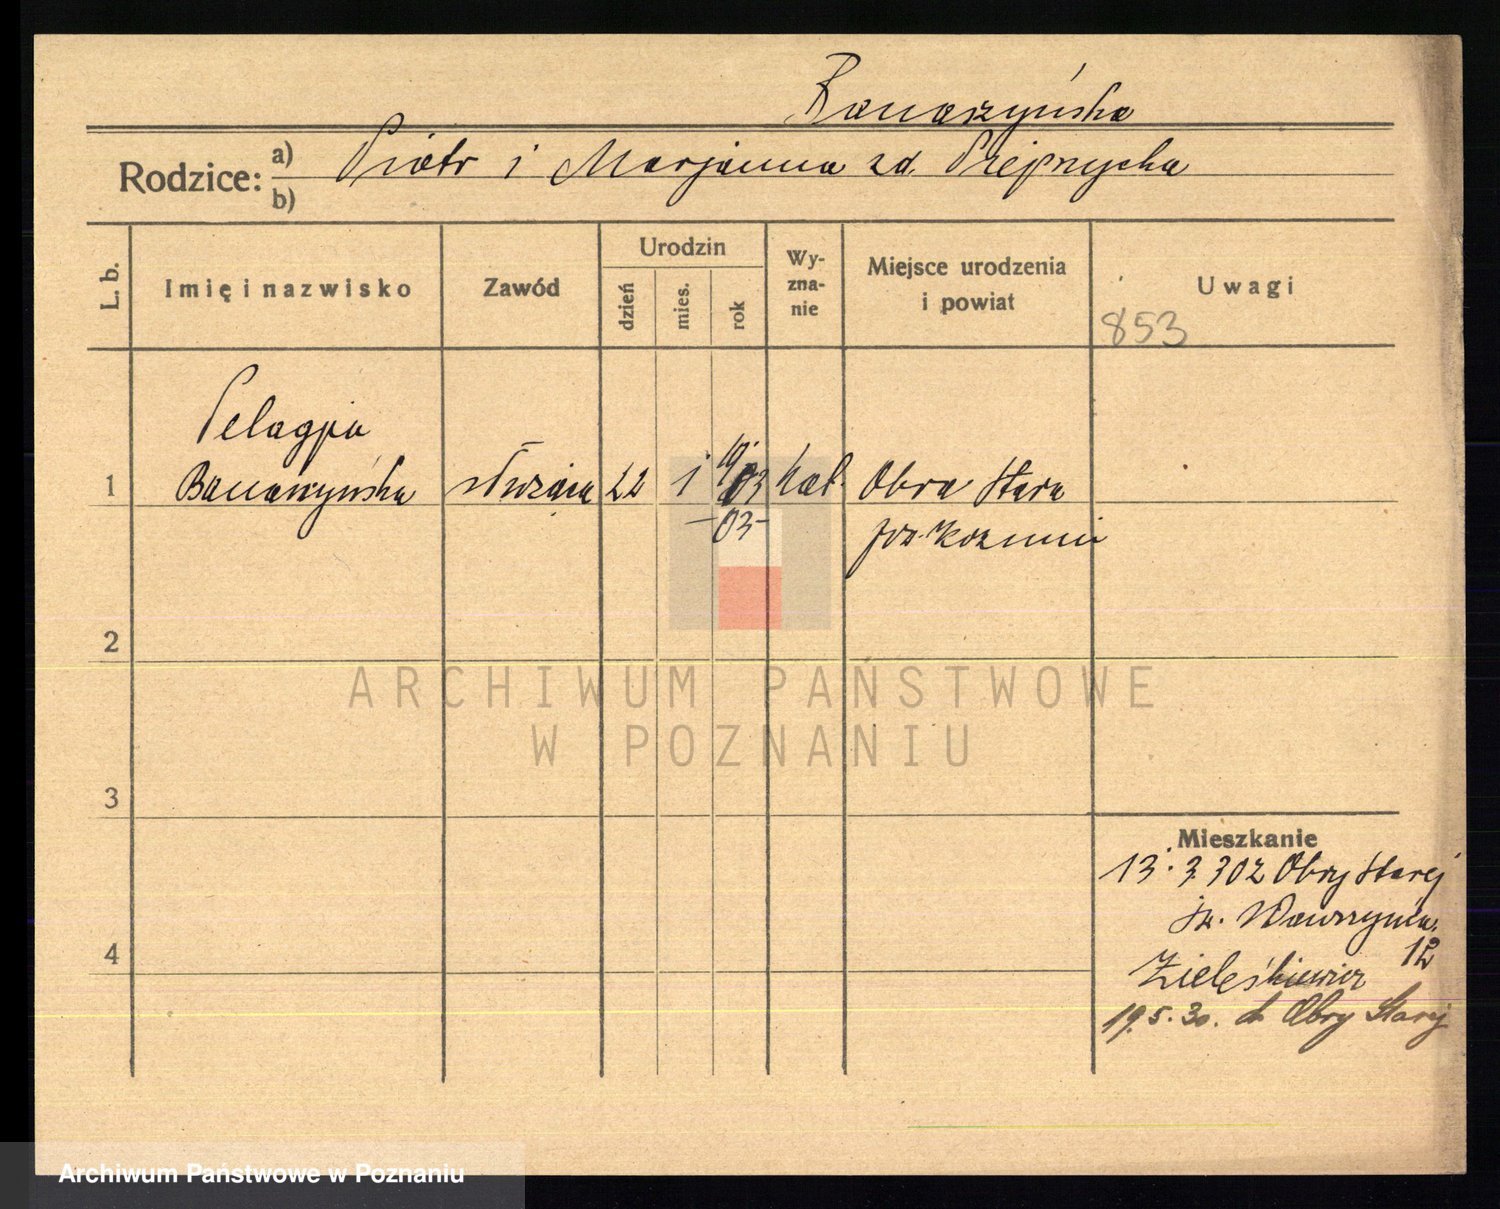 Banaszyńska
Rodzice: a) b) Piotr i Marjanna zd.
L. b. Imię i nazwisko Zawód Urodzin dzień mies. rok Wyznanie Miejsce urodzenia i powiat Uwagi
853
Pelagja
1 Banaszyńska służąca 22 1 03 kat. Obra Stara
-03-
2
ARCHIWUM PAŃSTWOWE
W POZNANIU
3
Mieszkanie
13. 3. 30 z Obry Starej
4
12
19. 5. 30. do Obry Starej
Archiwum Państwowe w Poznaniu